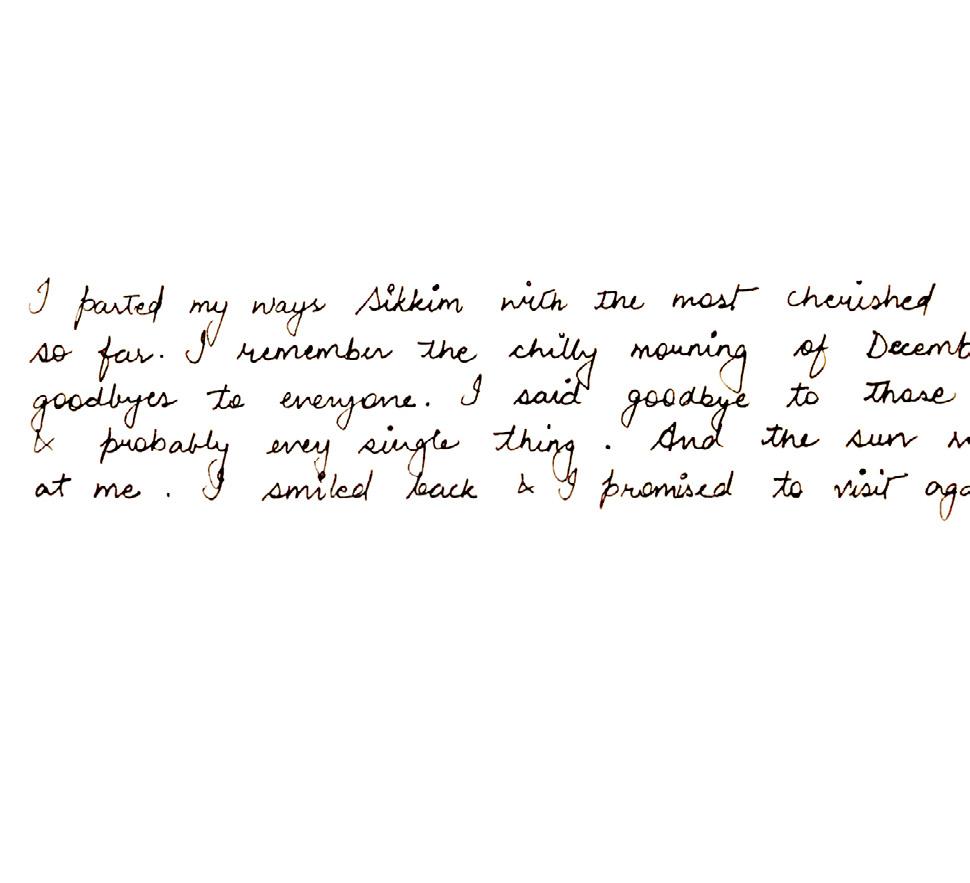 I parted my ways Sikkim with the most cherished
so far. I remember the chilly morning of Decemb
goodbyes to everyone. I said goodbye to those
& probably every single thing. And the sun
at me. I smiled back & I promised to visit aga